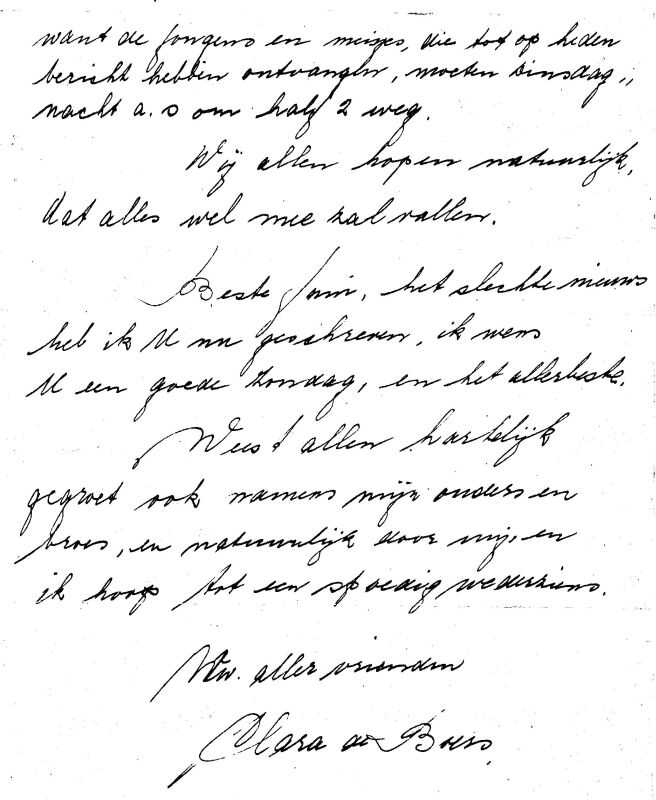 want de jongens en meisjes, die tot op heden
bericht hebben ontvangen, moeten Dinsdag
nacht a.s om half 2 weg.
Wij allen hopen natuurlijk,
dat alles wel mee zal vallen.
Beste Juin, het slechte nieuws
heb ik U nu geschreven, ik wens
U een goede Zondag, en het allerbeste.
Weest allen hartelijk
gegroet ook namens mijn ouders en
broer, en natuurlijk door mij, en
ik hoop tot een spoedig wederziens.
Uw. aller vrienden
Clara de Boers.